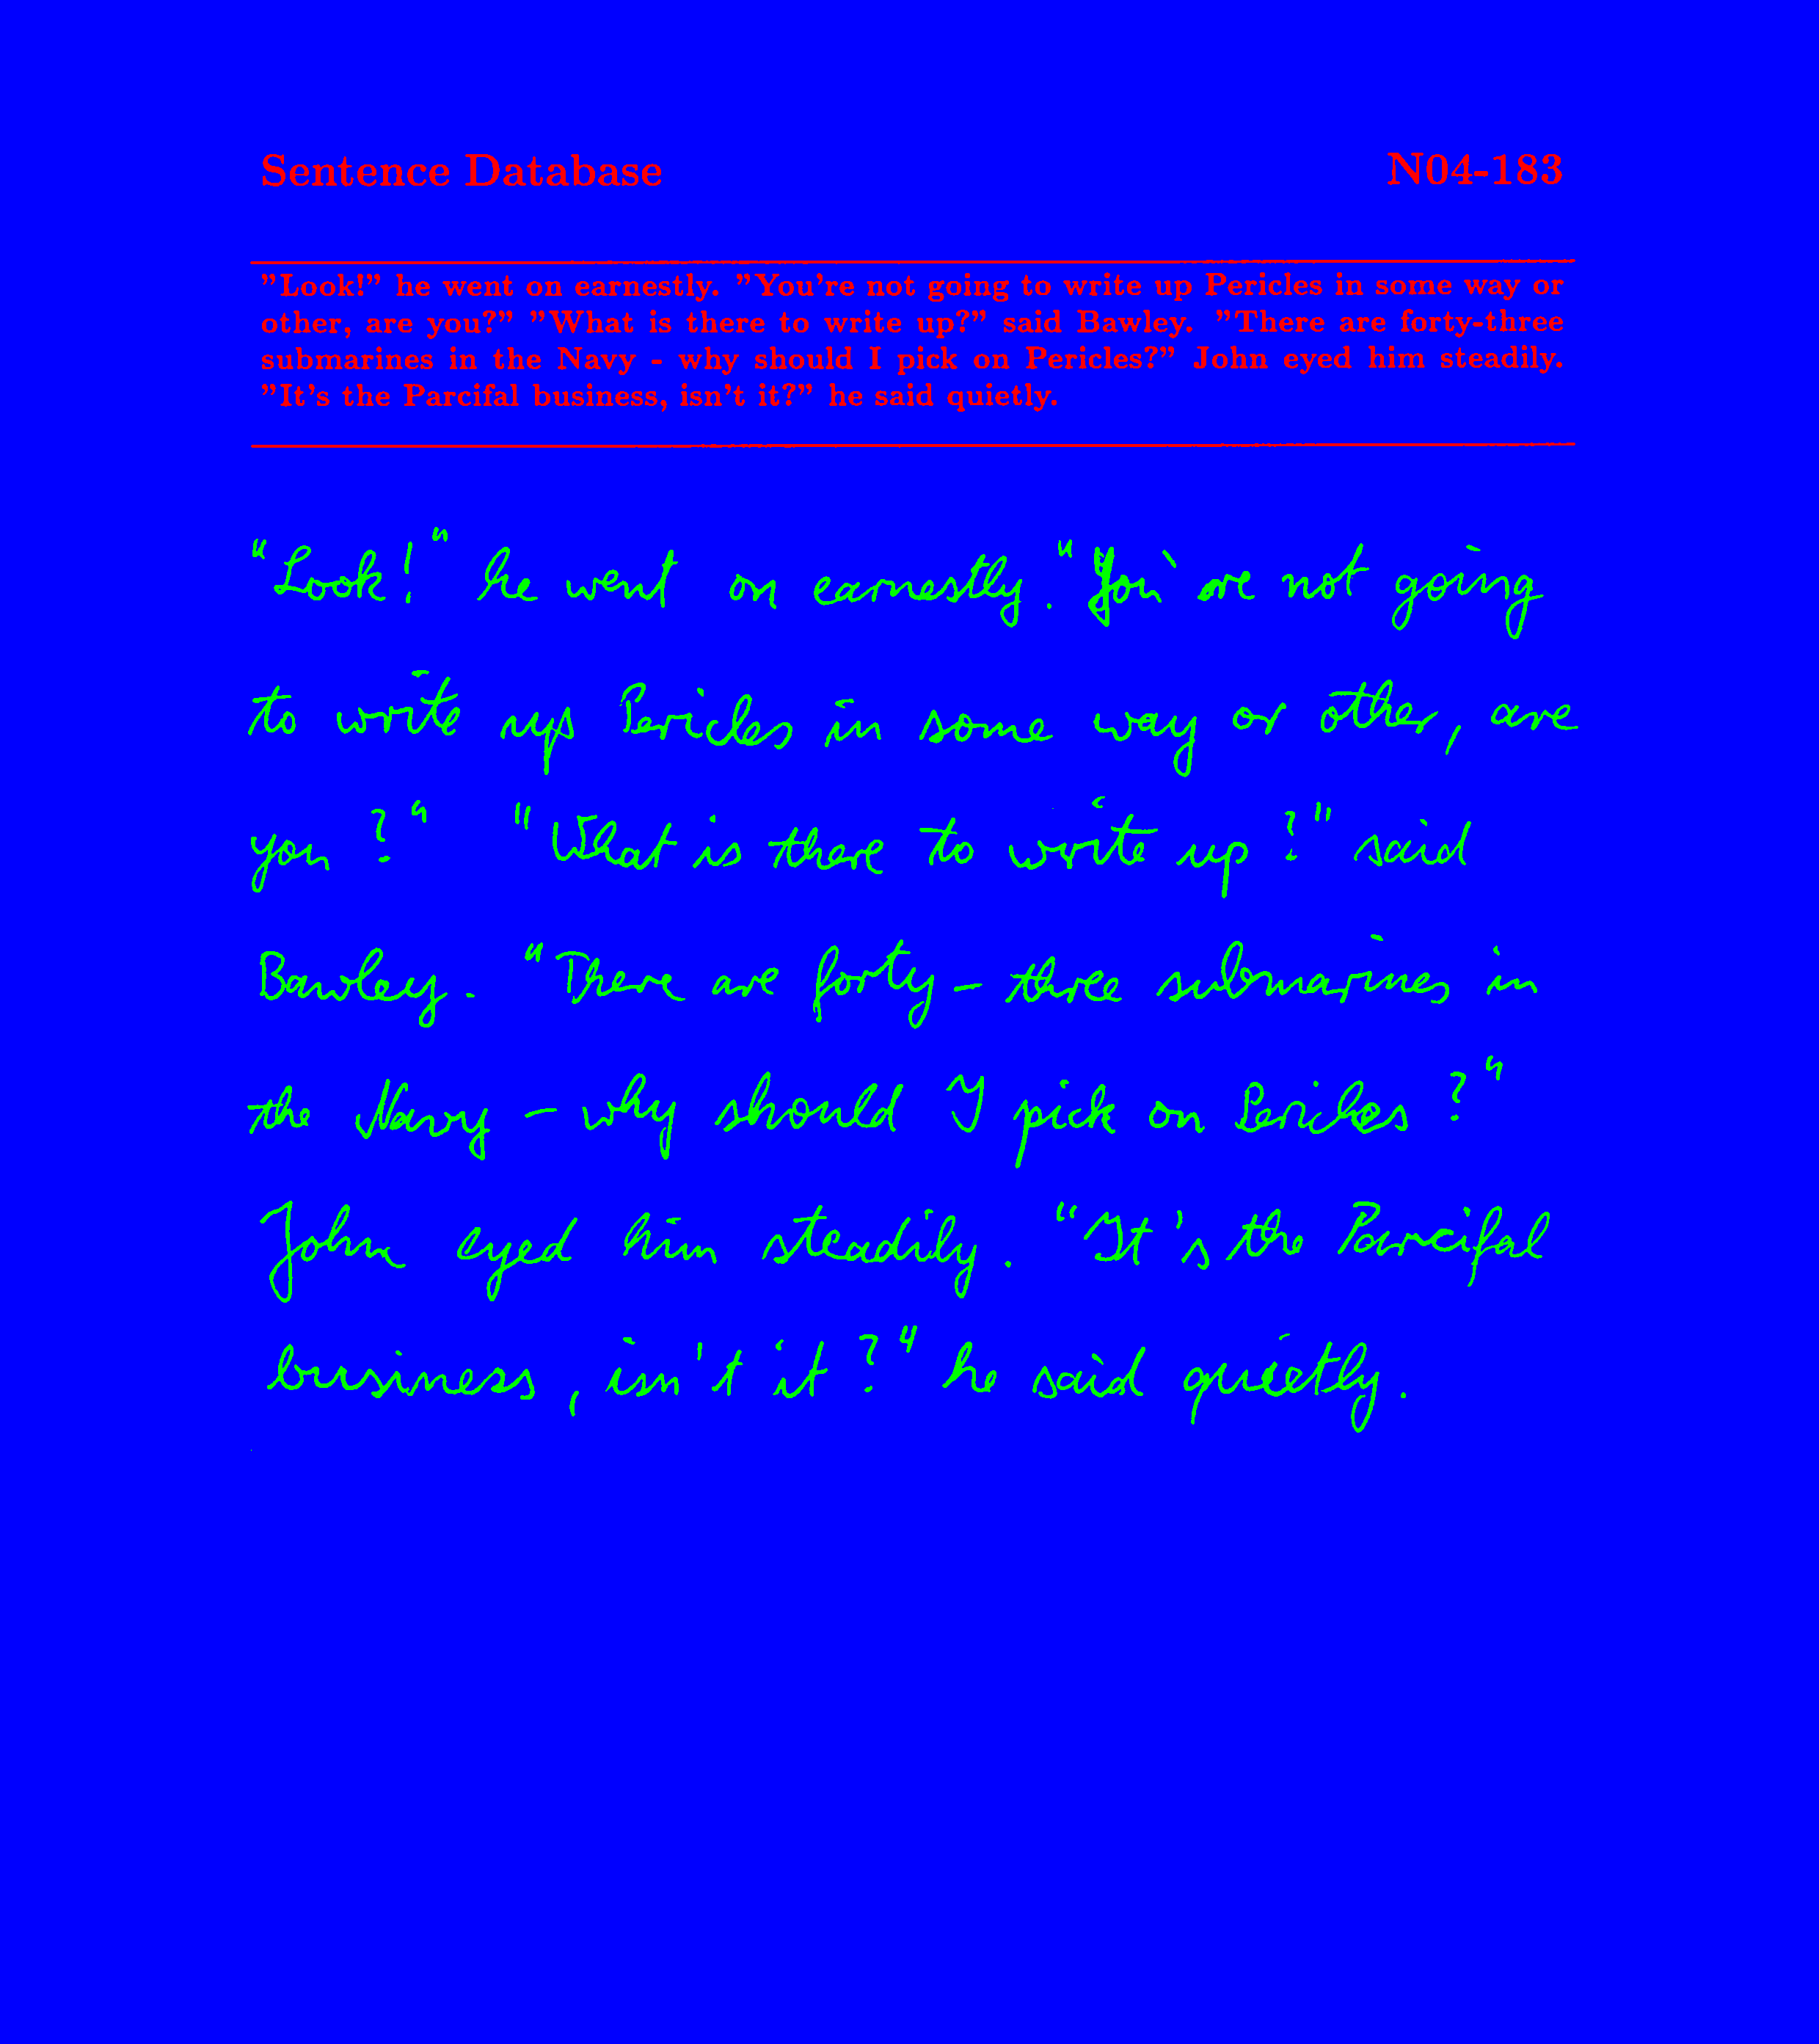 Sentence Database N04-183
"Look!" he went on earnestly. "You're not going to write up Pericles in some way or
other, are you?" "What is there to write up?" said Bawley. "There are forty-three
submarines in the Navy - why should I pick on Pericles?" John eyed him steadily.
"It's the Parcifal business, isn't it?" he said quietly.
"Look!" he went on earnestly. "You're not going
to write up Pericles in some way or other, are
you?" "What is there to write up?" said
Bawley. "There are forty-three submarines in
the Navy - why should I pick on Pericles?"
John eyed him steadily. "It's the Parcifal
business, isn't it?" he said quietly.